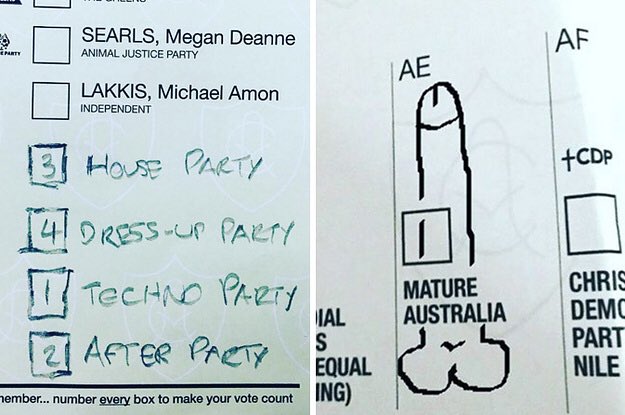 THE GREENS
SEARLS, Megan Deanne
ANIMAL JUSTICE PARTY
E PARTY
LAKKIS, Michael Amon
INDEPENDENT
3 HOUSE PARTY
4 DRESS-UP PARTY
1 TECHNO PARTY
2 AFTER PARTY
member... number every box to make your vote count
AE
1
MATURE
AUSTRALIA
IAL
S
EQUAL
ING)
AF
+CDP
CHRIS
DEMO
PART
NILE